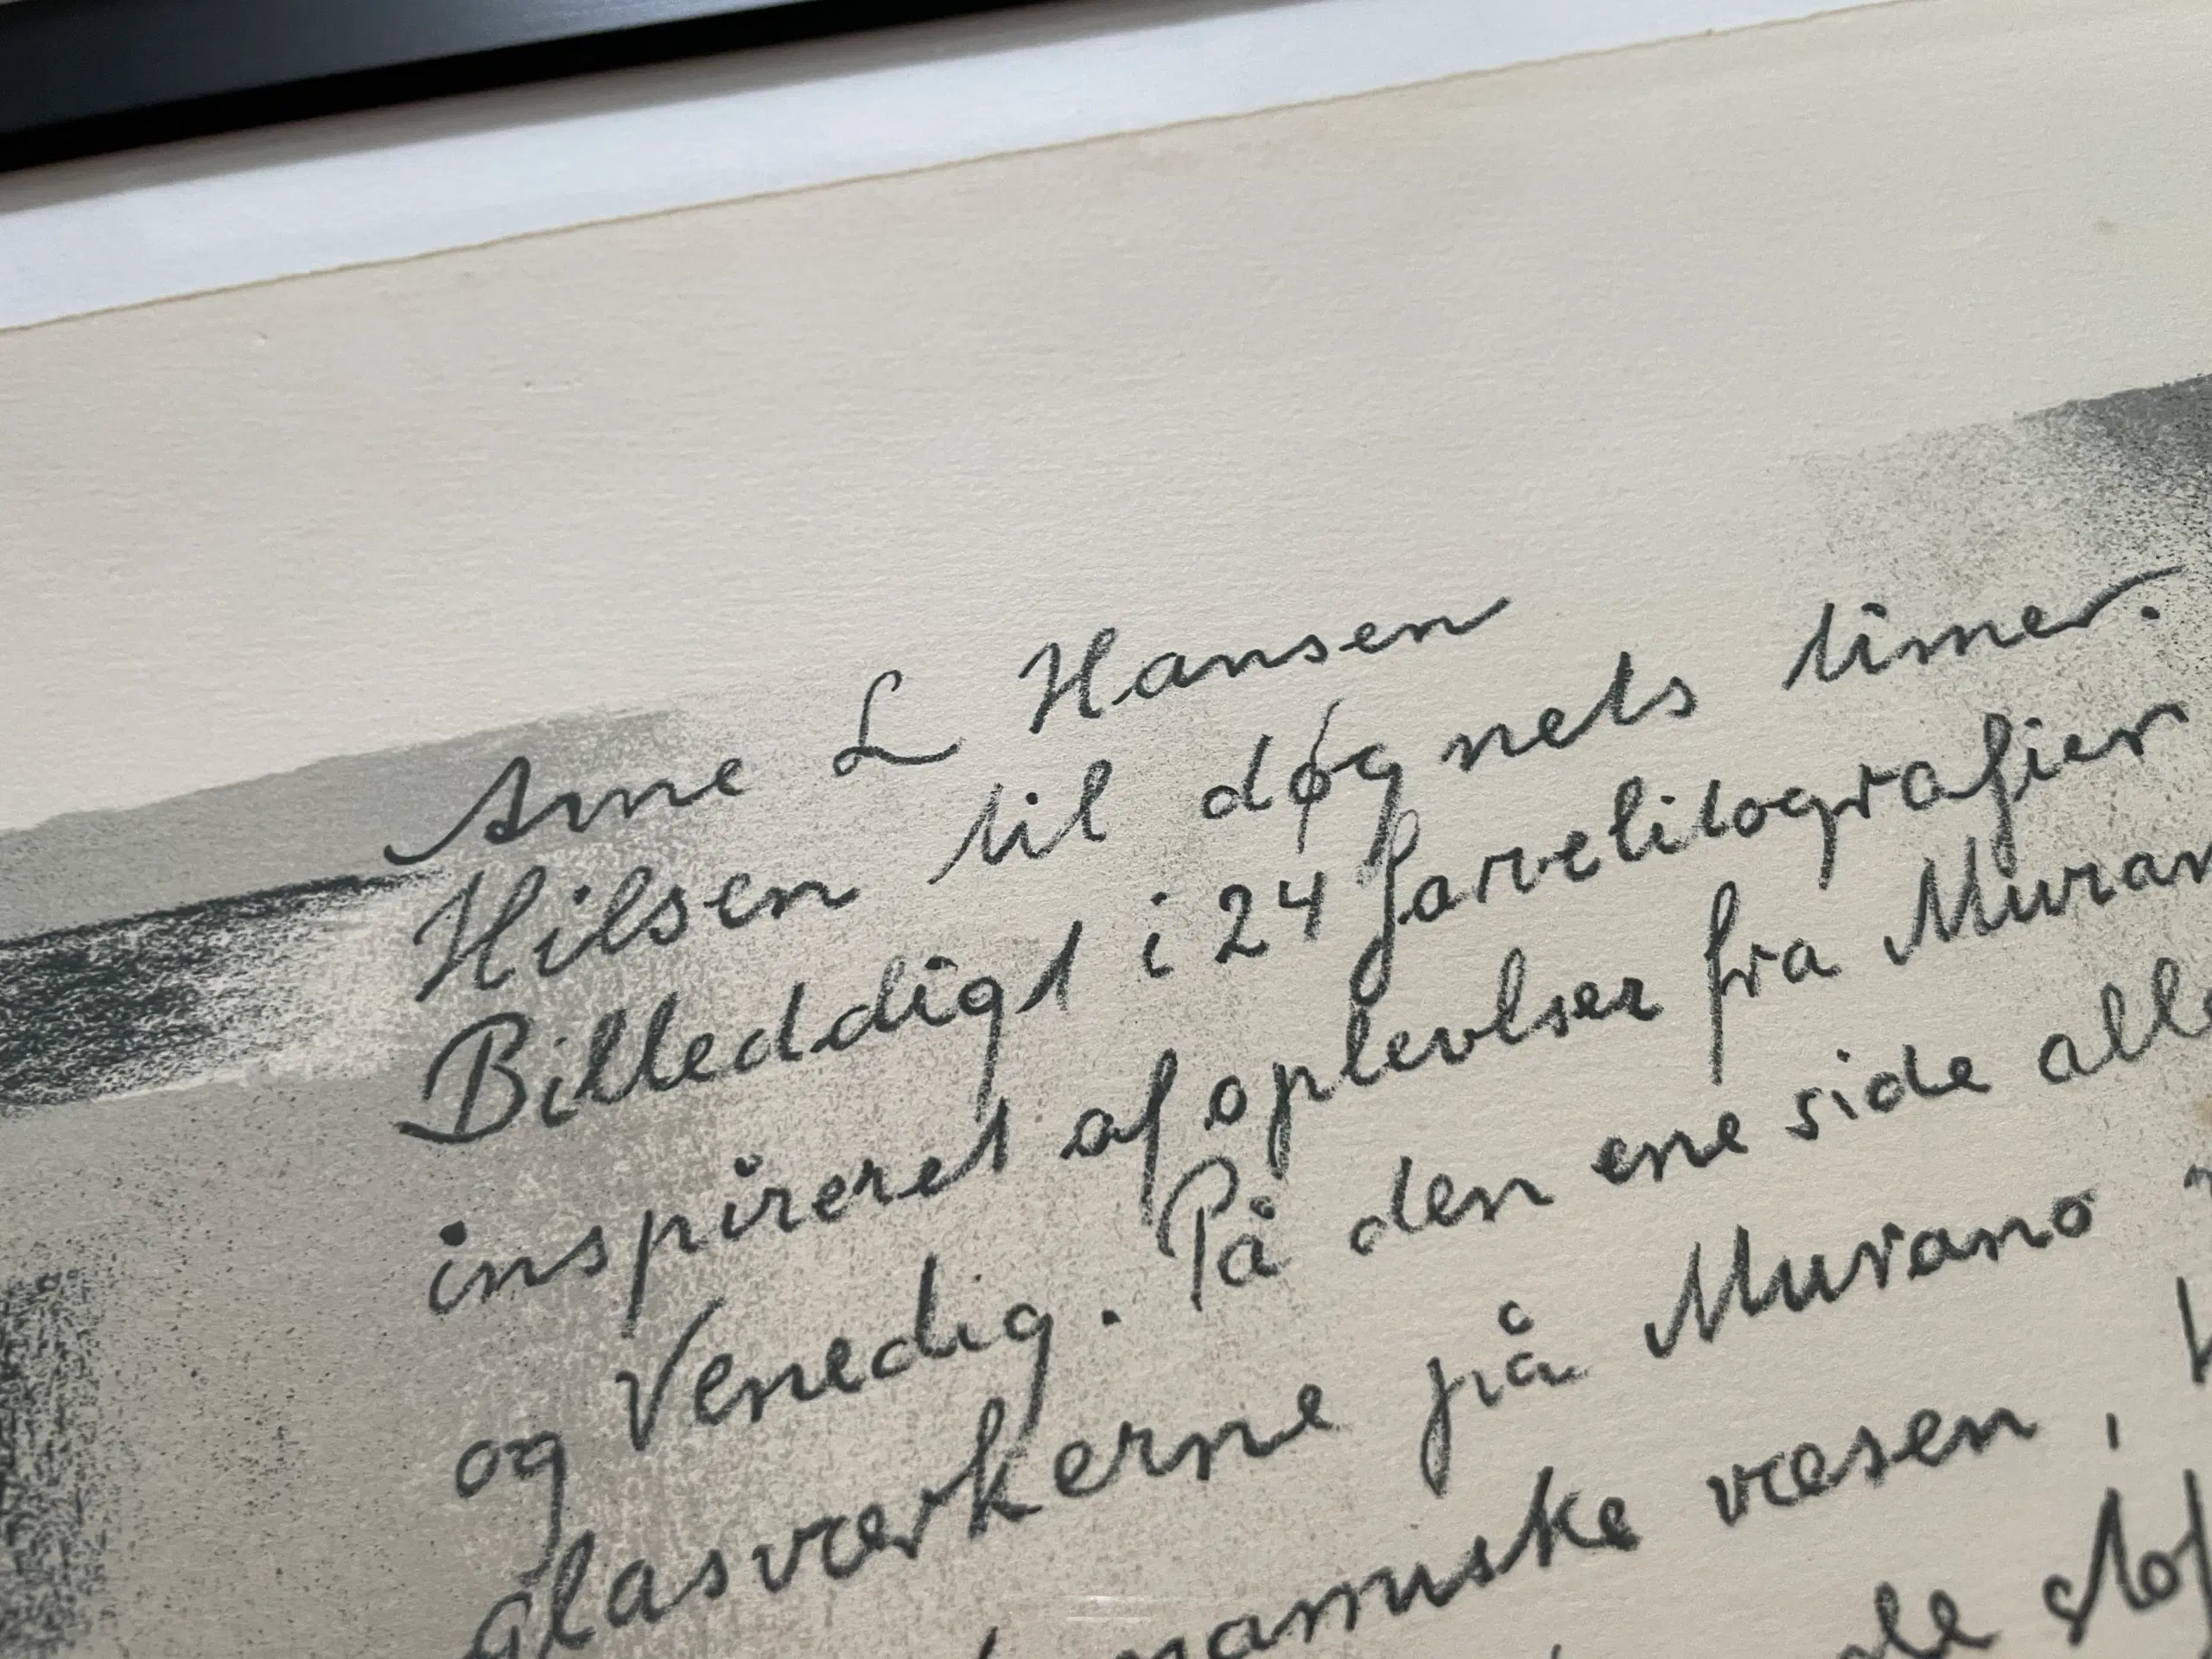 Arne L Hansen
Hilsen til døgnets timer.
Billeddigt i 24 farvelitografier
inspireret af oplevlser fra Muran
og Venedig. På den ene side alle
glasværkerne på Murano
namiske væsen,